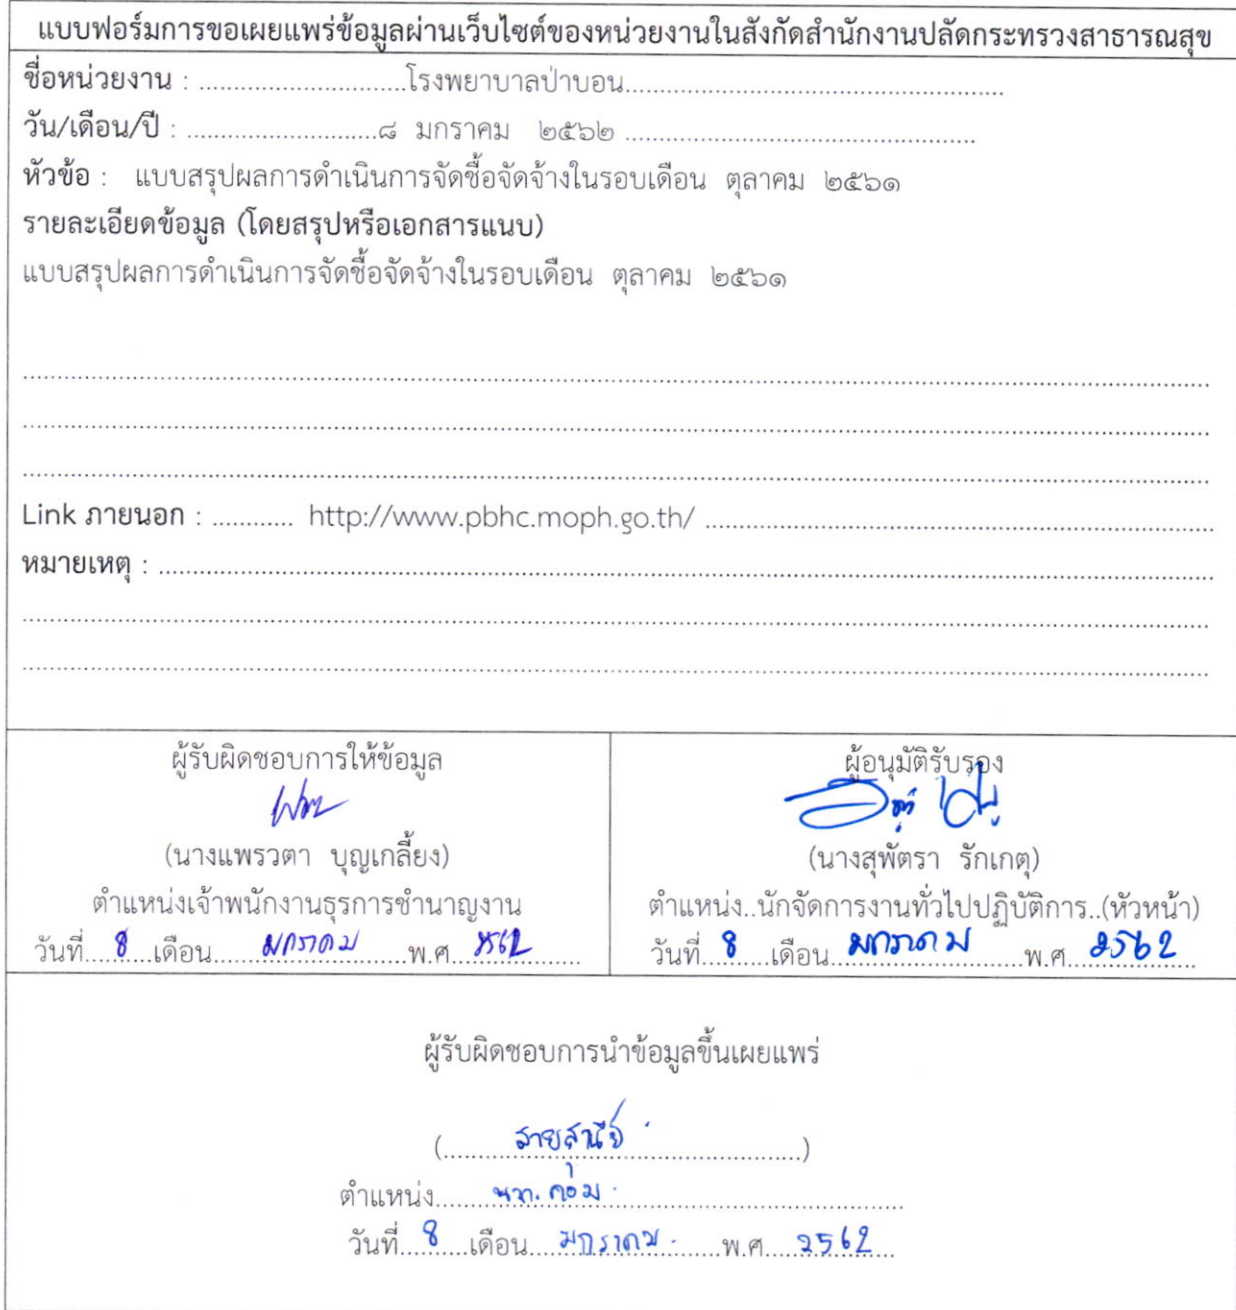 แบบฟอร์มการขอเผยแพร่ข้อมูลผ่านเว็บไซต์ของหน่วยงานในสังกัดสำนักงานปลัดกระทรวงสาธารณสุข
ชื่อหน่วยงาน : ..............................โรงพยาบาลป่าบอน.......................................................
วัน/เดือน/ปี : ............................๘ มกราคม ๒๕๖๒ ...................................................
หัวข้อ : แบบสรุปผลการดำเนินการจัดซื้อจัดจ้างในรอบเดือน ตุลาคม ๒๕๖๑
รายละเอียดข้อมูล (โดยสรุปหรือเอกสารแนบ)
แบบสรุปผลการดำเนินการจัดซื้อจัดจ้างในรอบเดือน ตุลาคม ๒๕๖๑
Link ภายนอก : ............ http://www.pbhc.moph.go.th/ ..........................................................................
หมายเหตุ : ..........................................................................
ผู้รับผิดชอบการให้ข้อมูล
(นางแพรวตา บุญเกลี้ยง)
ตำแหน่งเจ้าพนักงานธุรการชำนาญงาน
วันที่....8....เดือน.......มกราคม.......พ.ศ...2562.......
ผู้อนุมัติรับรอง
(นางสุพัตรา รักเกตุ)
ตำแหน่ง..นักจัดการงานทั่วไปปฏิบัติการ..(หัวหน้า)
วันที่...8.....เดือน..มกราคม........พ.ศ...2562...
ผู้รับผิดชอบการนำข้อมูลขึ้นเผยแพร่
ตำแหน่ง........นวก.คอม.......................................
วันที่...8....เดือน....มกราคม.......พ.ศ....2562....